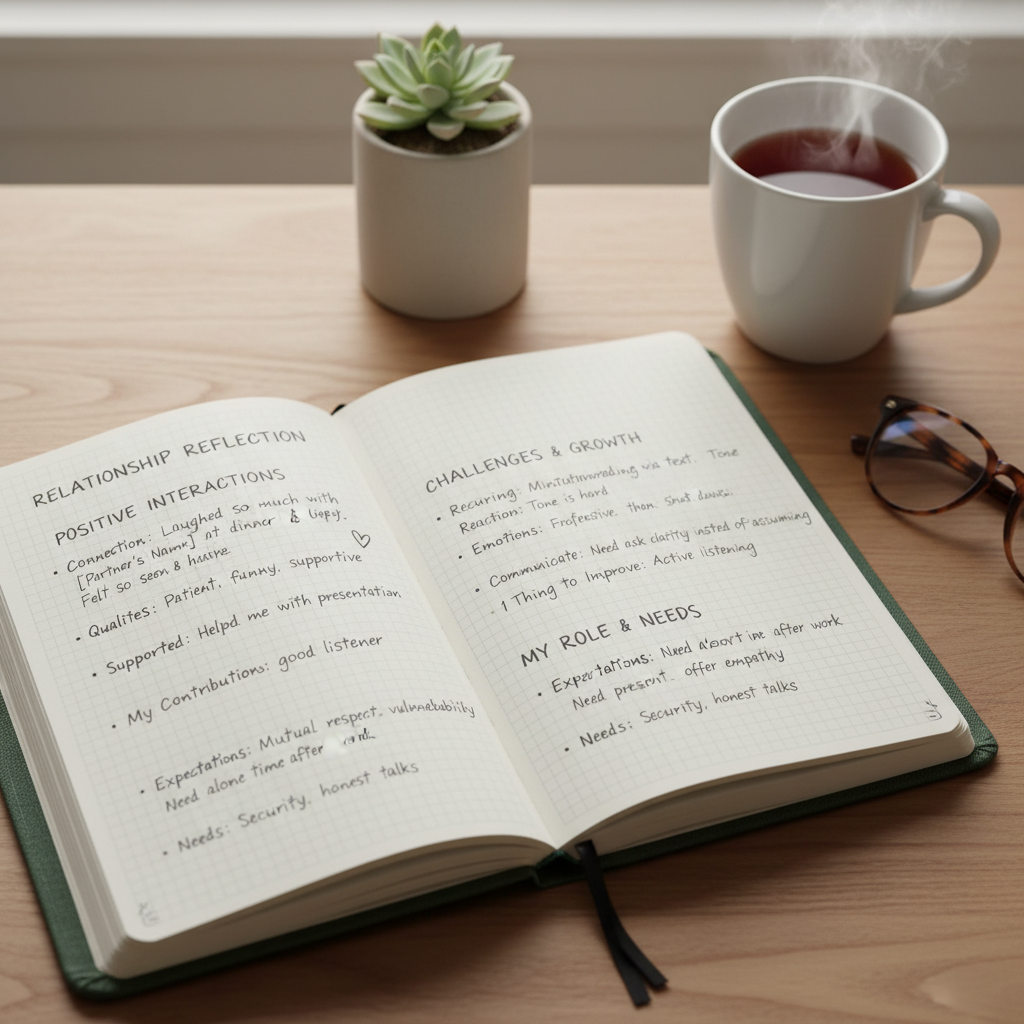 RELATIONSHIP REFLECTION
POSITIVE INTERACTIONS
• Connection: Laughed so much with
[Partner's Name] at dinner &
Felt so seen &
• Qualites: Patient, funny, supportive
• Supported: Helpd me with presentation
• My Contributions: good listener
• Expectations: Mutual respect.
Need alone time after
• Needs: Security, honest talks
CHALLENGES & GROWTH
• Recuring: via text. Tone
Reaction: Tone is hard
• Emotions: then
• Communicate: Need ask clarity insted of assuming
- 1 Thing to Improve: Active listening
MY ROLE & NEEDS
• Expectations: Need after work
Need present.. offer empathy
• Needs: Security, honest talks